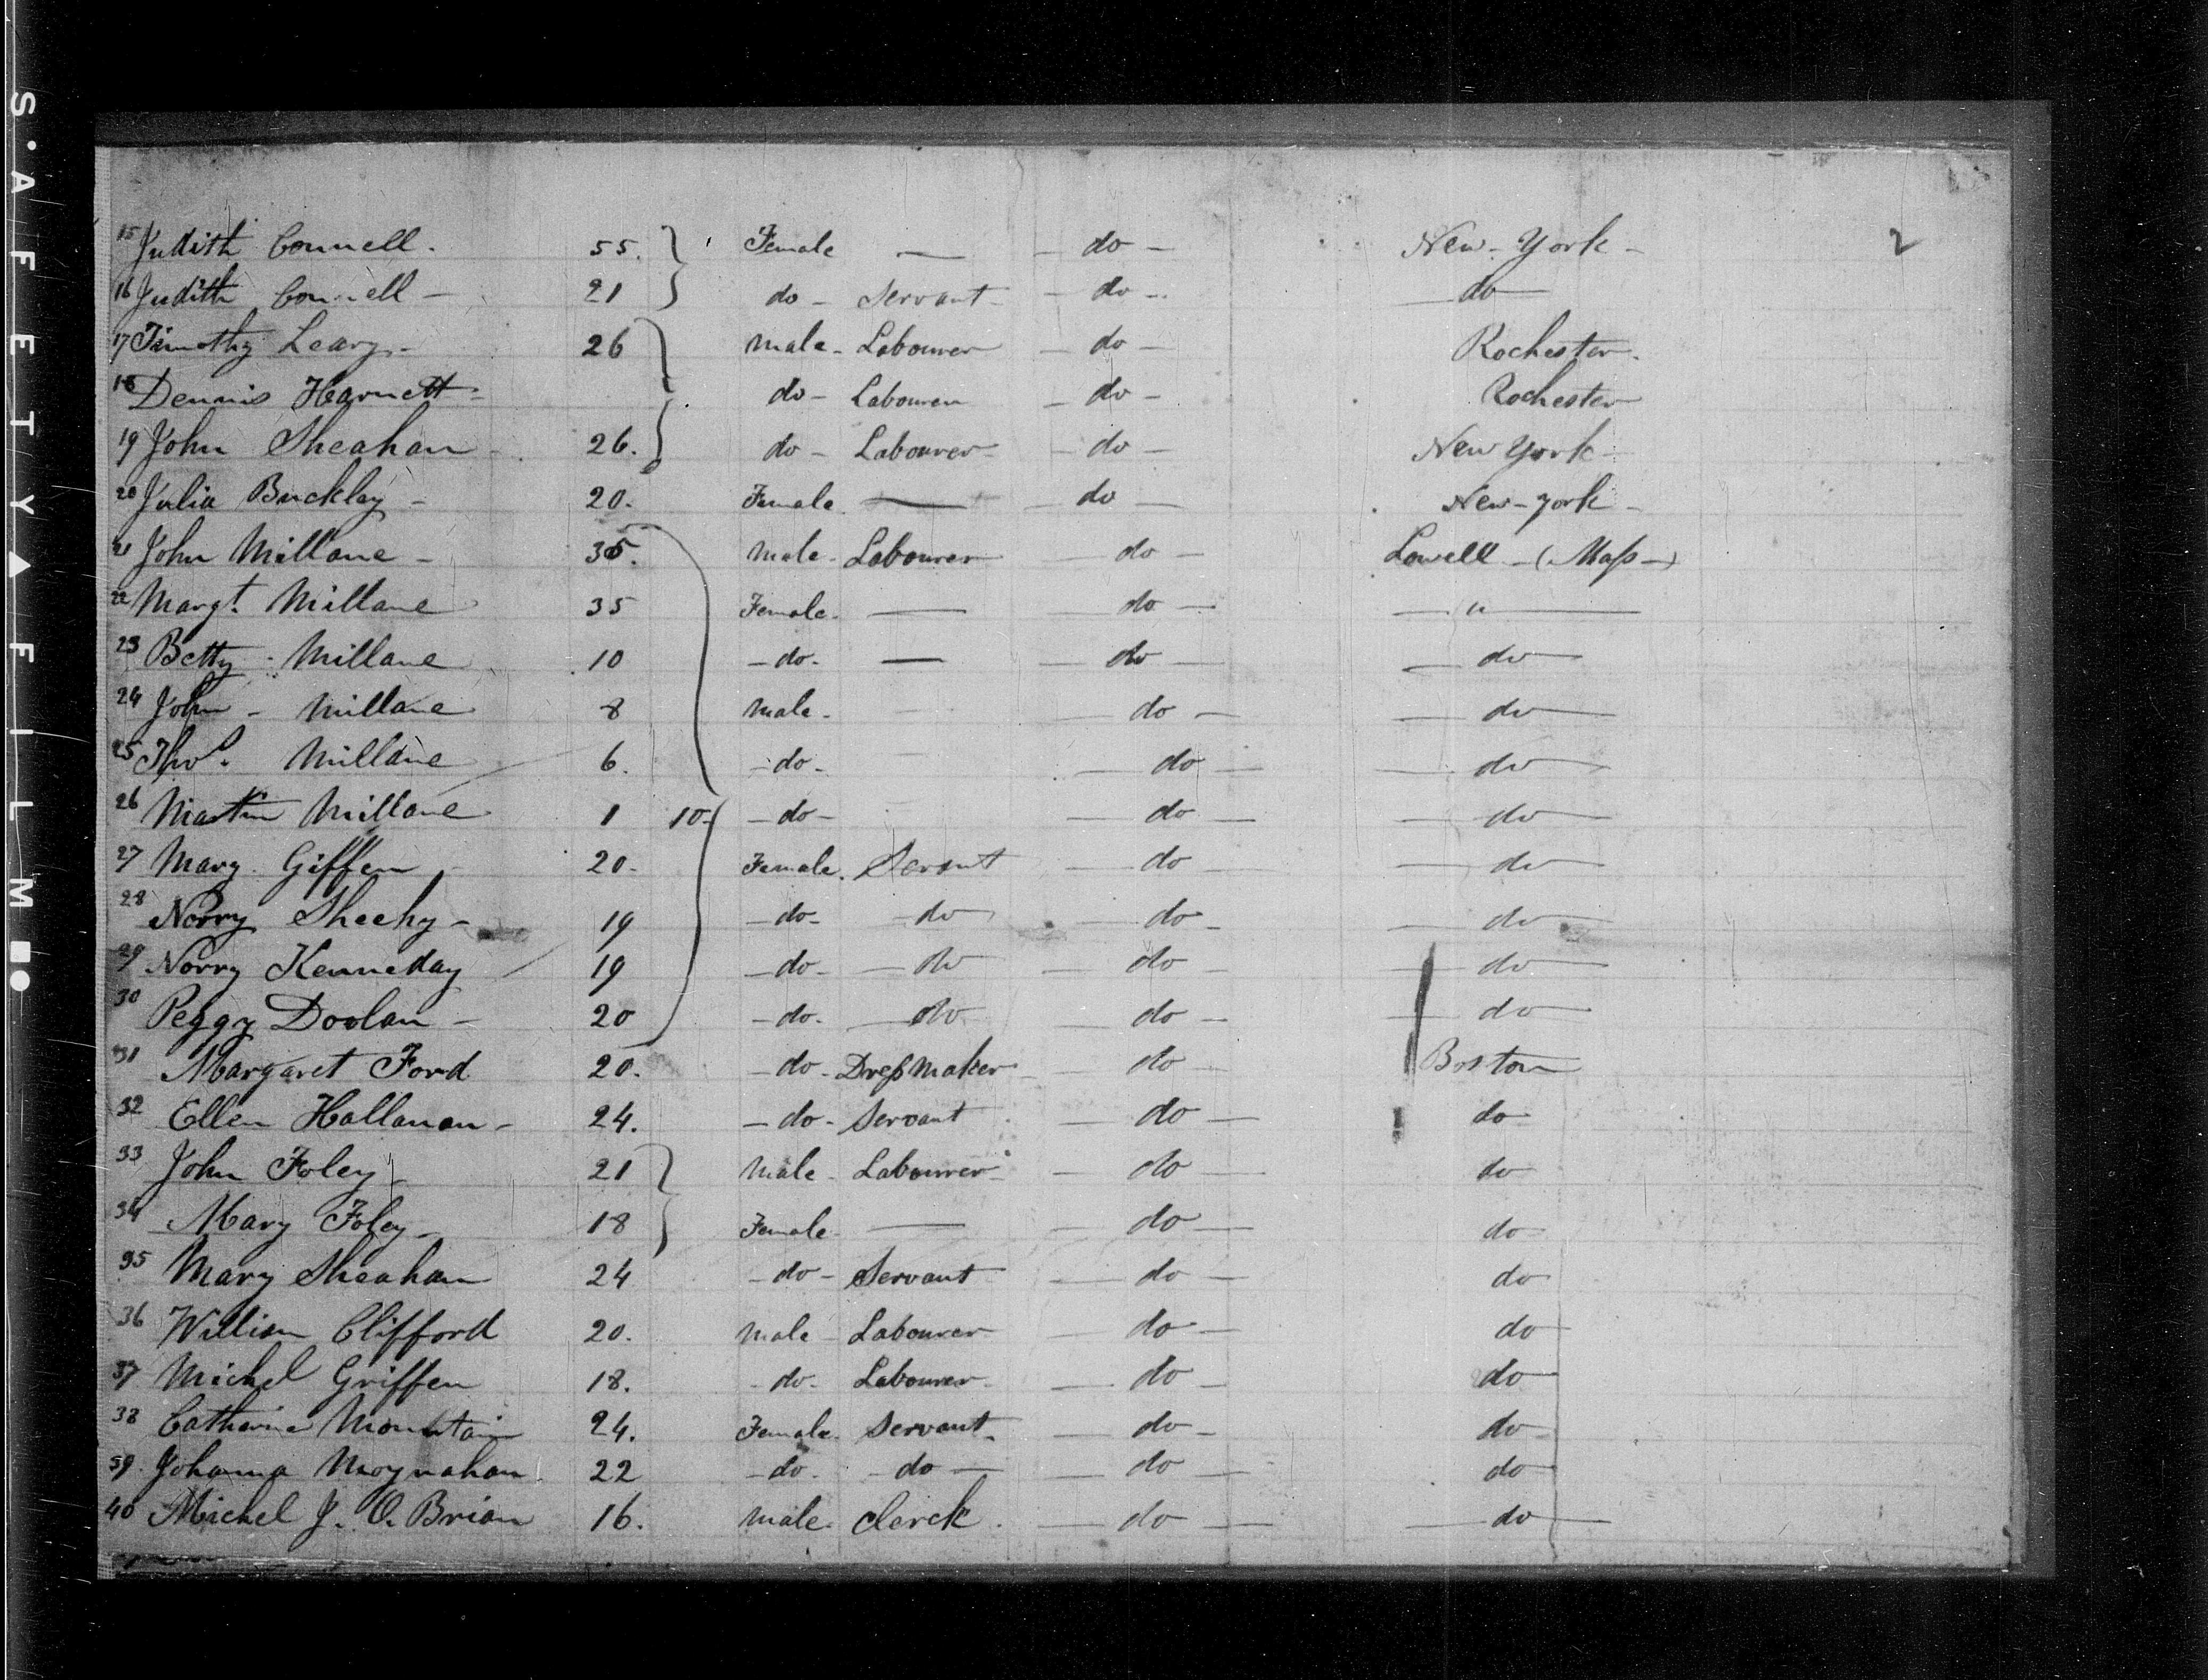 2
15 Judith Connell. 55. Female — do — New-York -
16 Judith Connell - 21 do - Servant - do - do
17 Timothy Leary - 26 Male - Labourer - do - Rochester.
18 Dennis Harnett - do - Labourer - do - Rochester
19 John Sheahan - 26. do - Labourer - do - New York -
20 Julia Buckley - 20. Female — do — New-York -
21 John Millane - 35. Male - Labourer - do - Lowell - (Mass -)
22 Margt. Millane 35 Female. — do — "
23 Betty - Millane 10 - do - — do — do
24 John - Millane 8 Male - — do — do
25 Thos. Millane 6. - do - — do — do
26 Martin Millane 1 10 - do - — do — do
27 Mary Giffen - 20. Female. Servant - do - do
28 Norry Sheehy - 19 - do - do - do - do
29 Norry Kenneday 19 - do - do - do - do
30 Peggy Doolan - 20 - do - do - do - do
31 Margaret Ford 20. - do - Dress Maker - do - Boston
32 Ellen Hallanan - 24. - do - Servant - do - do
33 John Foley 21 Male - Labourer - do - do
34 Mary Foley - 18 Female - — do — do
35 Mary Sheahan 24 - do - Servant - do - do
36 William Clifford 20. Male - Labourer - do - do
37 Michel Griffen 18. - do - Labourer - do - do
38 Catherine Mountain 24. Female. Servant - do - do
39. Johanna Moynahan 22 - do - do - do - do
40 Michel J. O. Brian 16. Male. Clerck. - do - do
SAFETY FILM